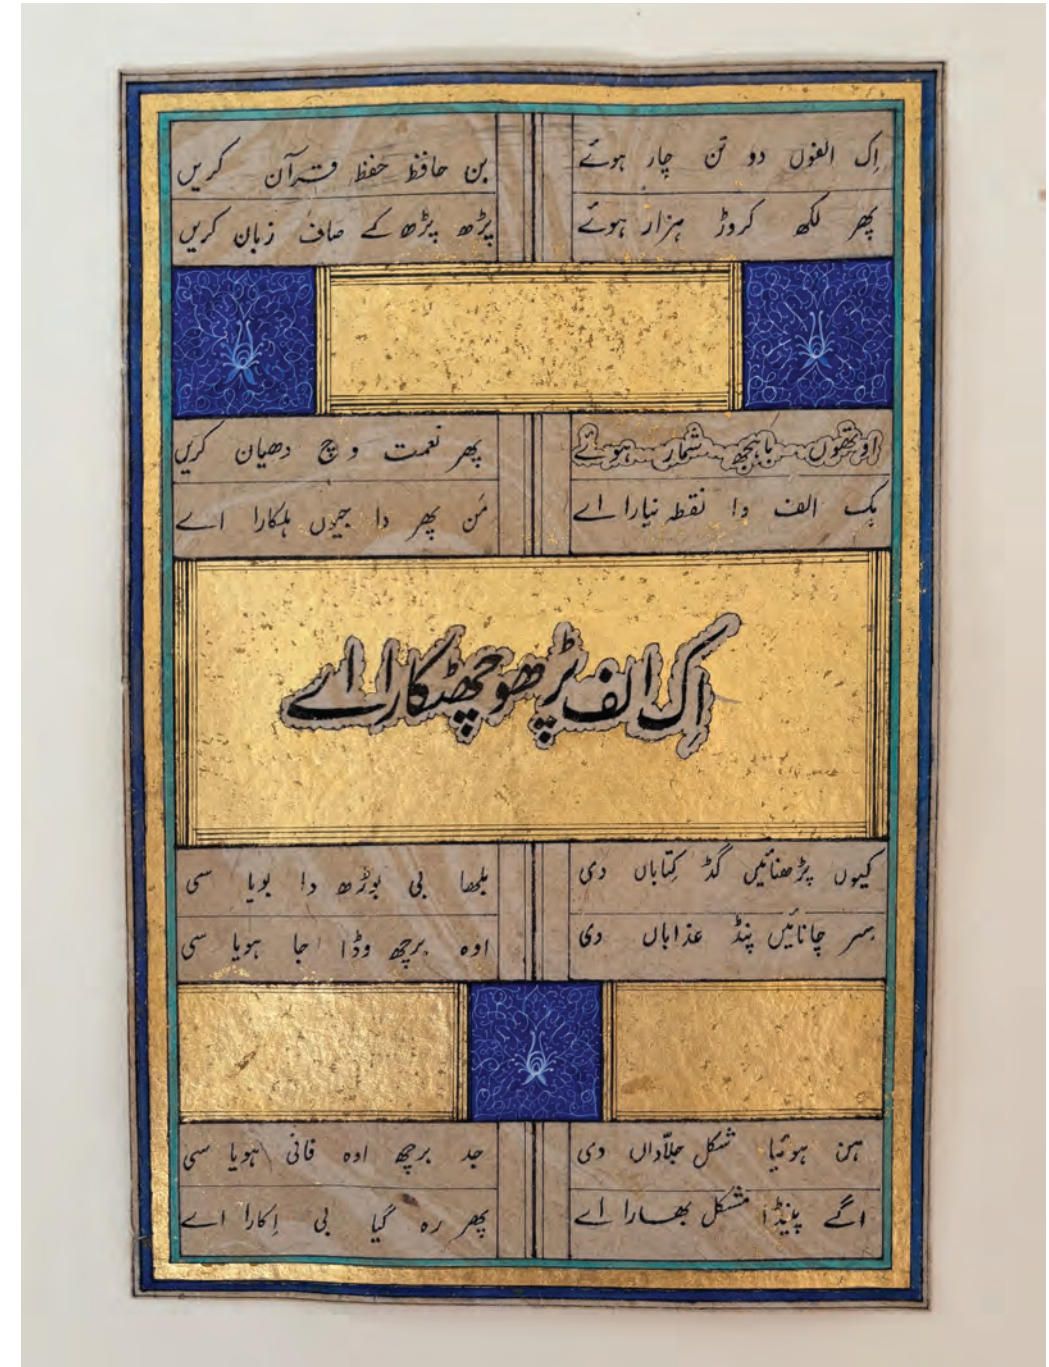 اِک الفوں دو تن چار ہوئے
پھر لکھ کروڑ ہزار ہوئے
اوتھوں باہجھ شمار ہوئے
ہک الف دا نقطہ نیارا اے
بن حافظ حفظ قرآن کریں
پڑھ پڑھ کے صاف زبان کریں
پھر نعمت وچ دھیان کریں
مَن پھر دا جیوں ہلکارا اے
اِک الف پڑھو چھٹکارا اے
کیوں پڑھنائیں گڈ کِتاباں دی
سِر چانائیں پنڈ عذاباں دی
ہن ہوئیا شکل جلّاداں دی
اگے پینڈا مشکل بھارا اے
بلھا بی بوڑھ دا بویا سی
اوہ برچھ وڈا جا ہویا سی
جد برچھ اوہ فانی ہویا سی
پھر رہ گیا بی اِکارا اے